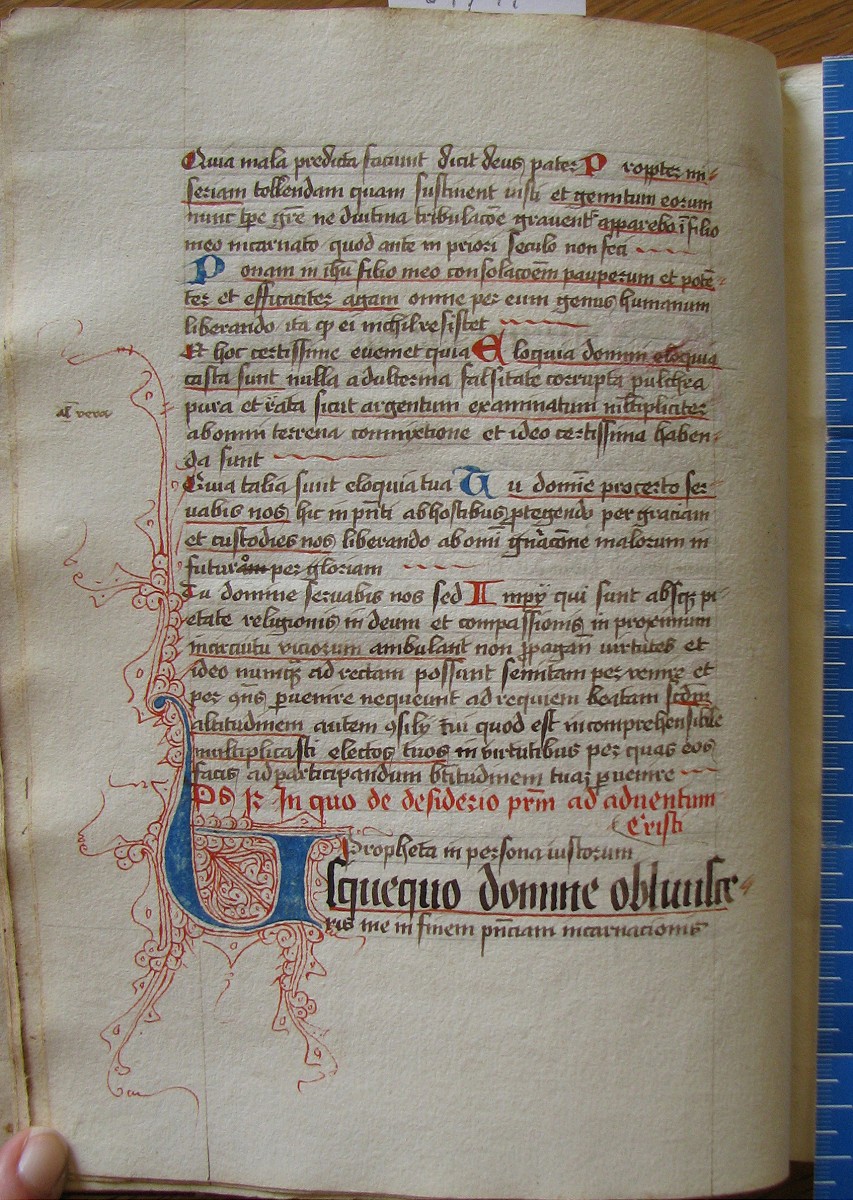 Quia mala predicta faciunt dicit deus pater Propter mi-
seriam tollendam quam sustinent iusti et gemitum eorum
nunc tpe gre ne diutina tribulacoe gravent apparebo i filio
meo incarnato quod ante in priori seculo non feci
Ponam in ihu filio meo consolacoem pauperum et poten-
ter et efficaciter agam omne per eum genus humanum
liberando ita q ei nichil resistet
Et hoc certissime eveniet quia Eloquia domini eloquia
casta sunt nulla adulterina falsitate corrupta pulchra
al vera
pura et rata sicut argentum examinatum mltipliciter
ab omni terrena commixtione et ideo certissima haben-
da sunt
Quia talia sunt eloquia tua Tu domine pro certo ser-
vabis nos hic in pnti ab hostibus ptegendo per graciam
et custodies nos liberando ab omi gnacone malorum in
futur per gloriam
Tu domine servabis nos sed Impii qui sunt absq pi-
etate religionis in deum et compassionis in proximum
incircuitu viciorum ambulant non ppagan virtutes et
ideo numq ad rectam possunt semitam pervenire et
per qns pvenire nequeunt ad requiem beatam Scdm
altitudinem autem qsily tui quod est incomprehensibile
multiplicasti electos tuos in virtutibus per quas eos
facis ad participandum btitudinem tuaz pvenire
Ps In quo de desiderio prm ad adventum
Cristi
Propheta in persona iustorum
Usquequo domine oblivisce-
ris me in finem pnciam incarnacionis